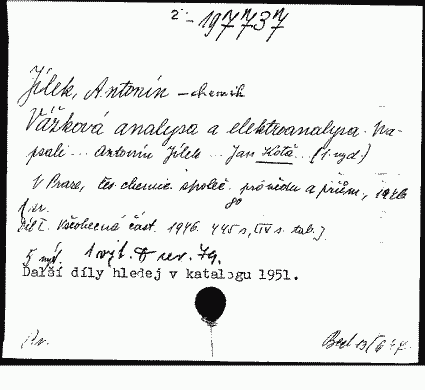 2 - 197737
Jílek, Antonín - chemik
Vážková analysa a elektroanalysa. Na-
psali ... Antonín Jílek ... Jan Koťa ... (1. vyd.)
V Praze, čes. chemic. společ. pro vědu a prům., 1946
8°
1 sv.
Díl I. Všeobecná část. 1946. 445 s, [IV s. tab.]
5 výt. 1 výt. rev. 79.
Další díly hledej v katalogu 1951.